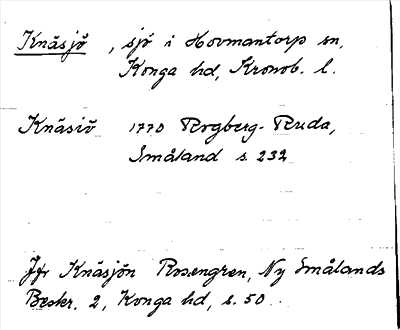 Knäsjö, sjö i Hovmantorp sn,
Konga hd, Kronob. l.
Knäsiö 1770 Rogberg-Ruda,
Småland s. 232
Jfr Knäsjön Rosengren, Ny Smålands
Beskr. 2, Konga hd, s. 50.